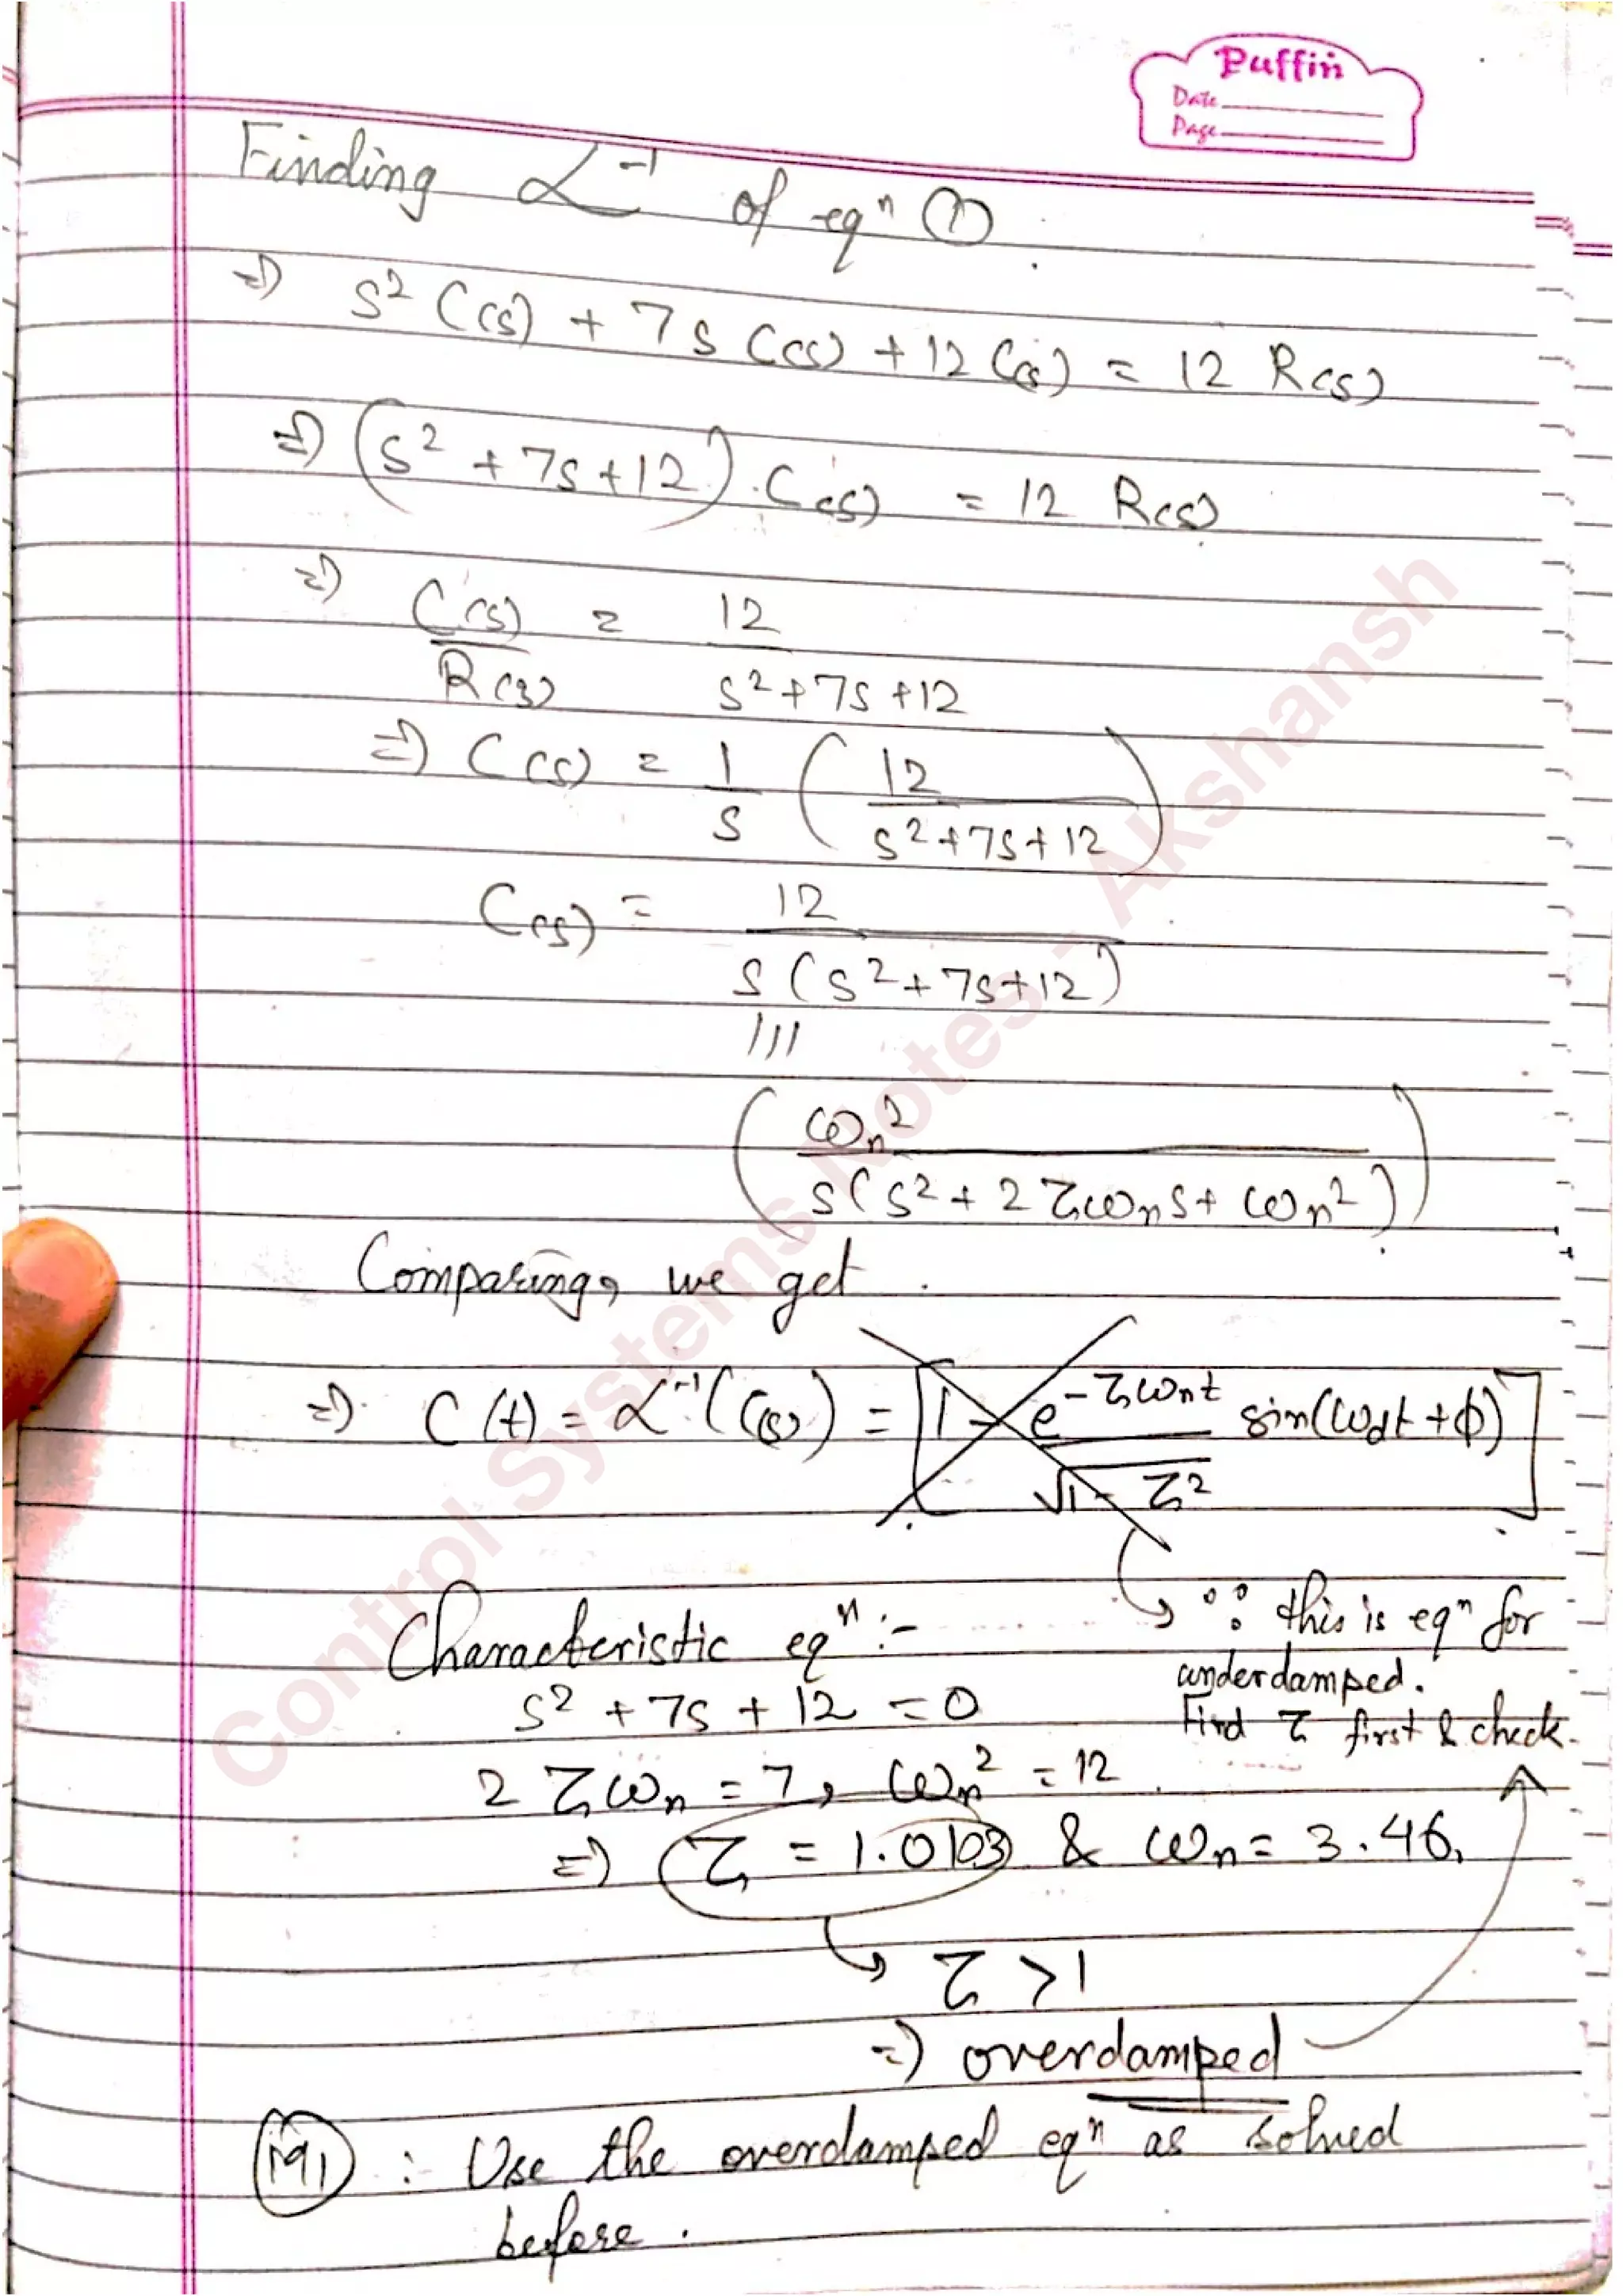 Puffin
Date
Page
Finding L⁻¹ of eqⁿ ①.
⇒ s² C(s) + 7s C(s) + 12 C(s) = 12 R(s)
⇒ (s² + 7s + 12) . C(s) = 12 R(s)
⇒ C(s)/R(s) = 12/(s² + 7s + 12)
⇒ C(s) = 1/s (12/(s² + 7s + 12))
C(s) = 12/(s(s² + 7s + 12))
///
(ωn²/(s(s² + 2ζωns + ωn²)))
Comparing, we get
⇒ C(t) = L⁻¹(C(s)) = [1 - e^(-ζωnt)/√(1 - ζ²) sin(ωdt + ϕ)]
∵ this is eqⁿ for
underdamped.
Find ζ first & check.
Characteristic eqⁿ :-
s² + 7s + 12 = 0
2ζωn = 7, ωn² = 12
⇒ ζ = 1.0103 & ωn = 3.46
ζ > 1
⇒ overdamped
M1 : Use the overdamped eqⁿ as solved
before.
Control Systems Notes - Akshansh